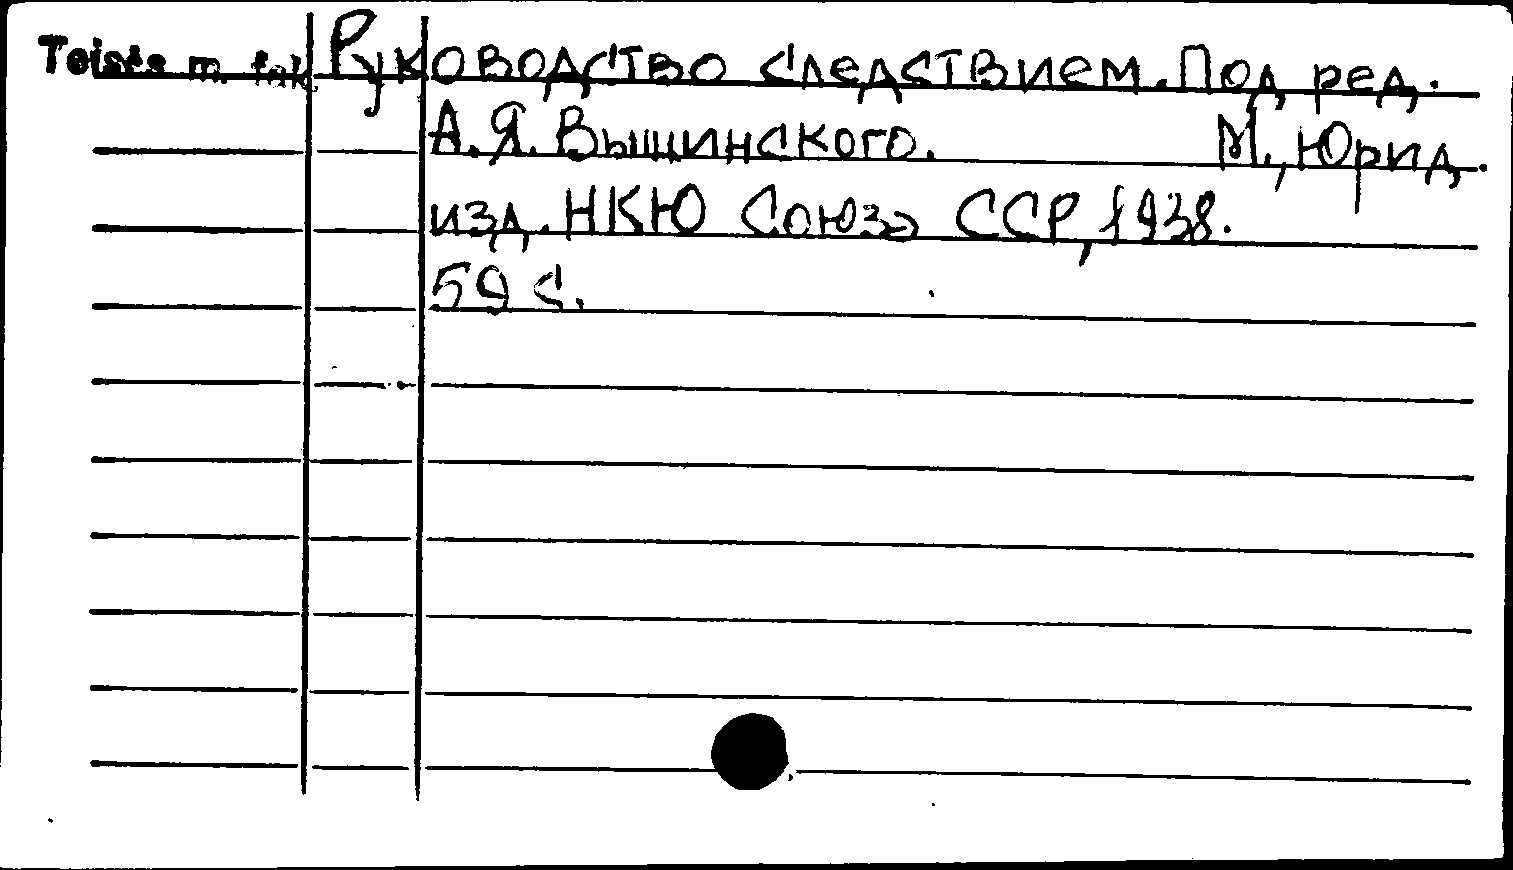 Teisės m. fak. Руководство следствием. Под ред.
А.Я. Вышинского. М., Юрид.
изд. НКЮ Союза ССР, 1938.
59 с.